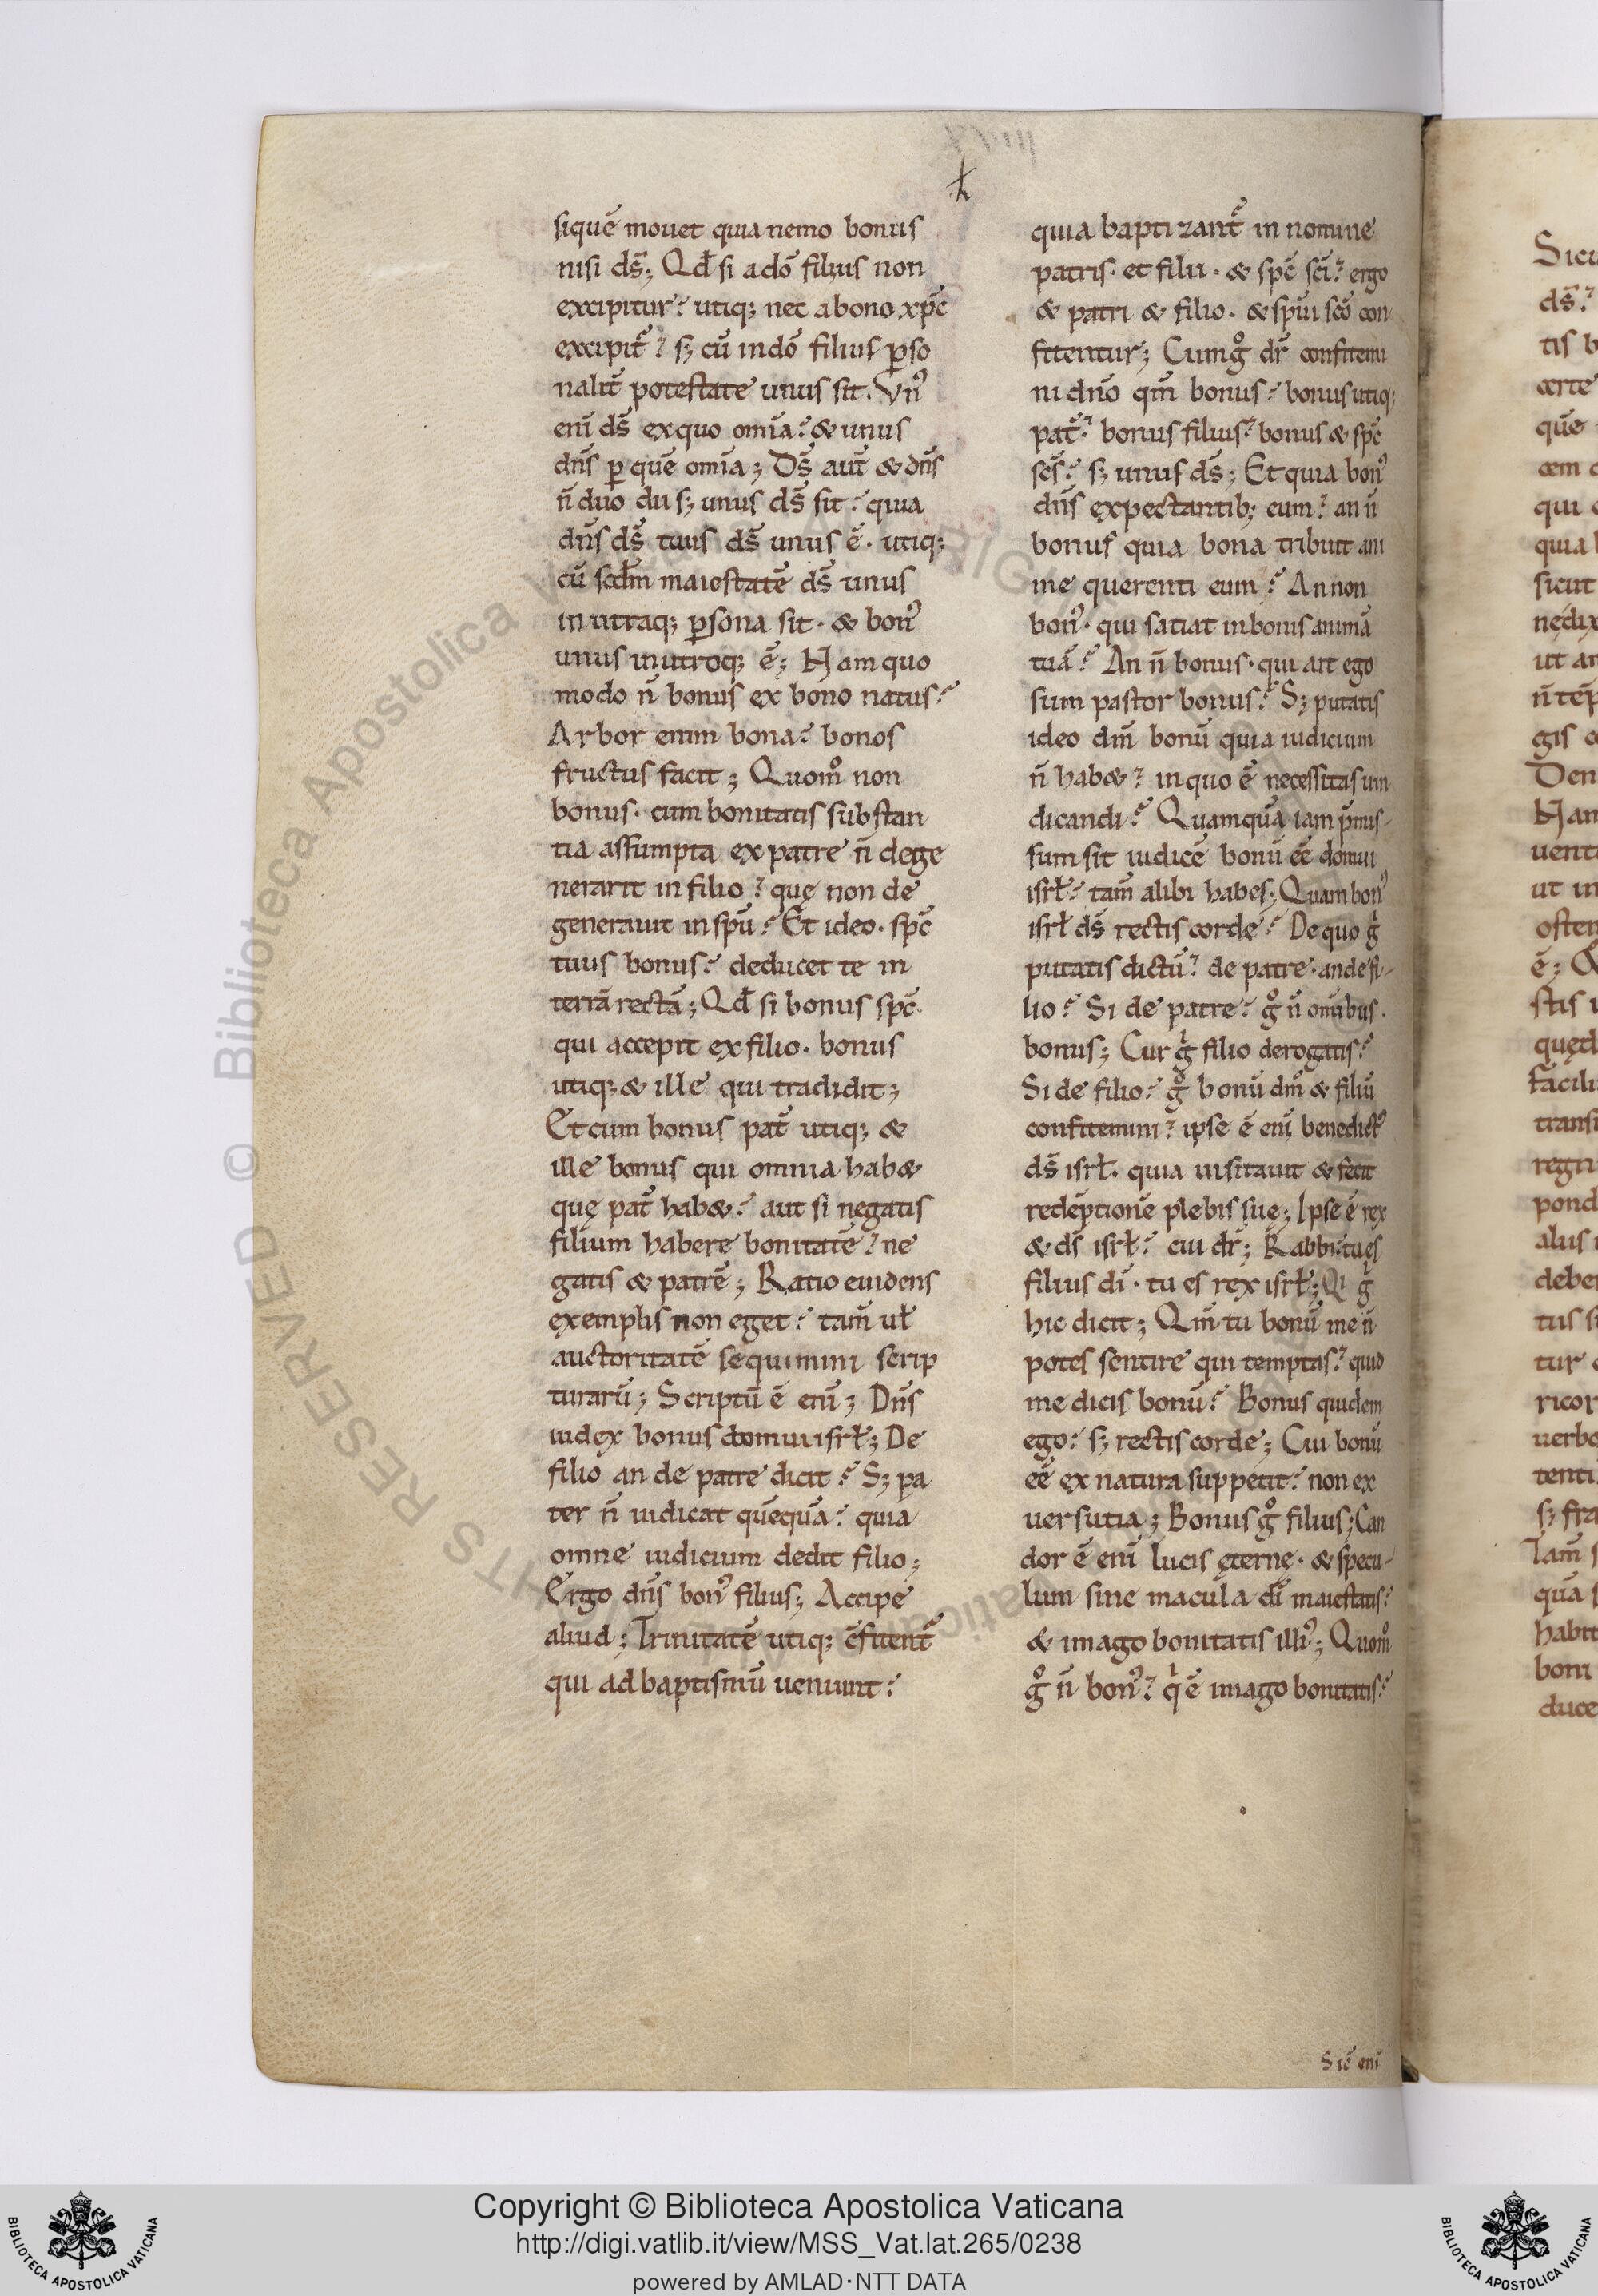 siquē mouet quia nemo bonus
nisi ds̄; Qđ si a dō filius non
excipitur? utiq; nec a bono xp̄c
excipit᷑? s; cū in dō filius ꝑso
nalit᷑ potestate unus sit. Vn᷒
enī ds̄ ex quo om̄ia? & unus
dn̄s ꝑ quē om̄ia; Ds̄ aut̄ & dn̄s
n̄ duo dii s; unus ds̄ sit? quia
dn̄s ds̄ tuus ds̄ unus ē. utiq;
cū scđm maiestatē ds̄ unus
in utraq; ꝑsona sit. & bon᷒
unus in utroq; ē; Nam quo
modo n̄ bonus ex bono natus?
Arbor enim bona? bonos
fructus facit; Quom̊ non
bonus. cum bonitatis substan
tia assumpta ex patre n̄ dege
nerarit in filio? quę non de
generauit in spū? Et ideo. sp̄c
tuus bonus? deducet te in
terrā rectā; Qđ si bonus sp̄c.
qui accepit ex filio. bonus
utiq; & ille qui tradidit;
Et cum bonus pat᷑ utiq; &
ille bonus qui omnia hab&
quę pat᷑ hab&? aut si negatis
filium habere bonitatē? ne
gatis & patrē; Ratio euidens
exemplis non eget? tam̄ uł
auctoritatē sequimini scrip
turarū; Scriptū ē enī; Dn̄s
iudex bonus domui isrł; De
filio an de patre dicit? S; pa
ter n̄ iudicat quēquā? quia
omne iudicium dedit filio;
Ergo dn̄s bon᷒ filius; Accipe
aliud; Trinitatē utiq; c̄fitent᷑
qui ad baptismū ueniunt?
quia baptizant᷑ in nomine
patris. et filii. & sp̄c sc̄i? ergo
& patri & filio. & spūi scō con
fitentur; Cum g̊ dr̄ confitemi
ni dn̄o qm̄ bonus? bonus utiq;
pat᷑? bonus filius? bonus & sp̄c
sc̄s? s; unus ds̄; Et quia bon᷒
dn̄s expectantib; eum? an n̄
bonus quia bona tribuit ani
me querenti eum? An non
bon᷒. qui satiat in bonis animā
tuā? An n̄ bonus. qui ait ego
sum pastor bonus? S; putatis
ideo dm̄ bonū quia iudicium
n̄ hab&? in quo ē necessitas iu
dicandi? Quamquā iam p̄mis-
sum sit iudicē bonū eē domui
isrł? tam̄ alibi habes; Quam bon᷒
isrł ds̄ rectis corde? De quo gͥ
putatis dictū? de patre. an de fi-
lio? Si de patre? g̊ n̄ om̄ibus.
bonus; Cur gͥ filio derogatis?
Si de filio? g̊ bonū dm̄ & filiū
confitemini? ipse ē enī benedict᷒
ds̄ isrł. quia uisitauit & fecit
redēptionē plebis suę; Ipse ē rex
& ds̄ isrł? cui dr̄; Rabbi? tu es
filius dī. tu es rex isrł; Qi gͥ
hic dicit; Qm̄ tu bonū me n̄
potes sentire qui temptas? quid
me dicis bonū? Bonus quidem
ego? s; rectis corde; Cui bonū
eē ex natura suppetit? non ex
uersutia; Bonus g̊ filius; Can
dor ē enī lucis ęternę. & specu-
lum sine macula dī maiestatis?
& imago bonitatis illi᷒; Quom̊
g̊ n̄ bon᷒? qͥ ē imago bonitatis?
Siē enī
Copyright © Biblioteca Apostolica Vaticana
http://digi.vatlib.it/view/MSS_Vat.lat.265/0238
powered by AMLAD·NTT DATA